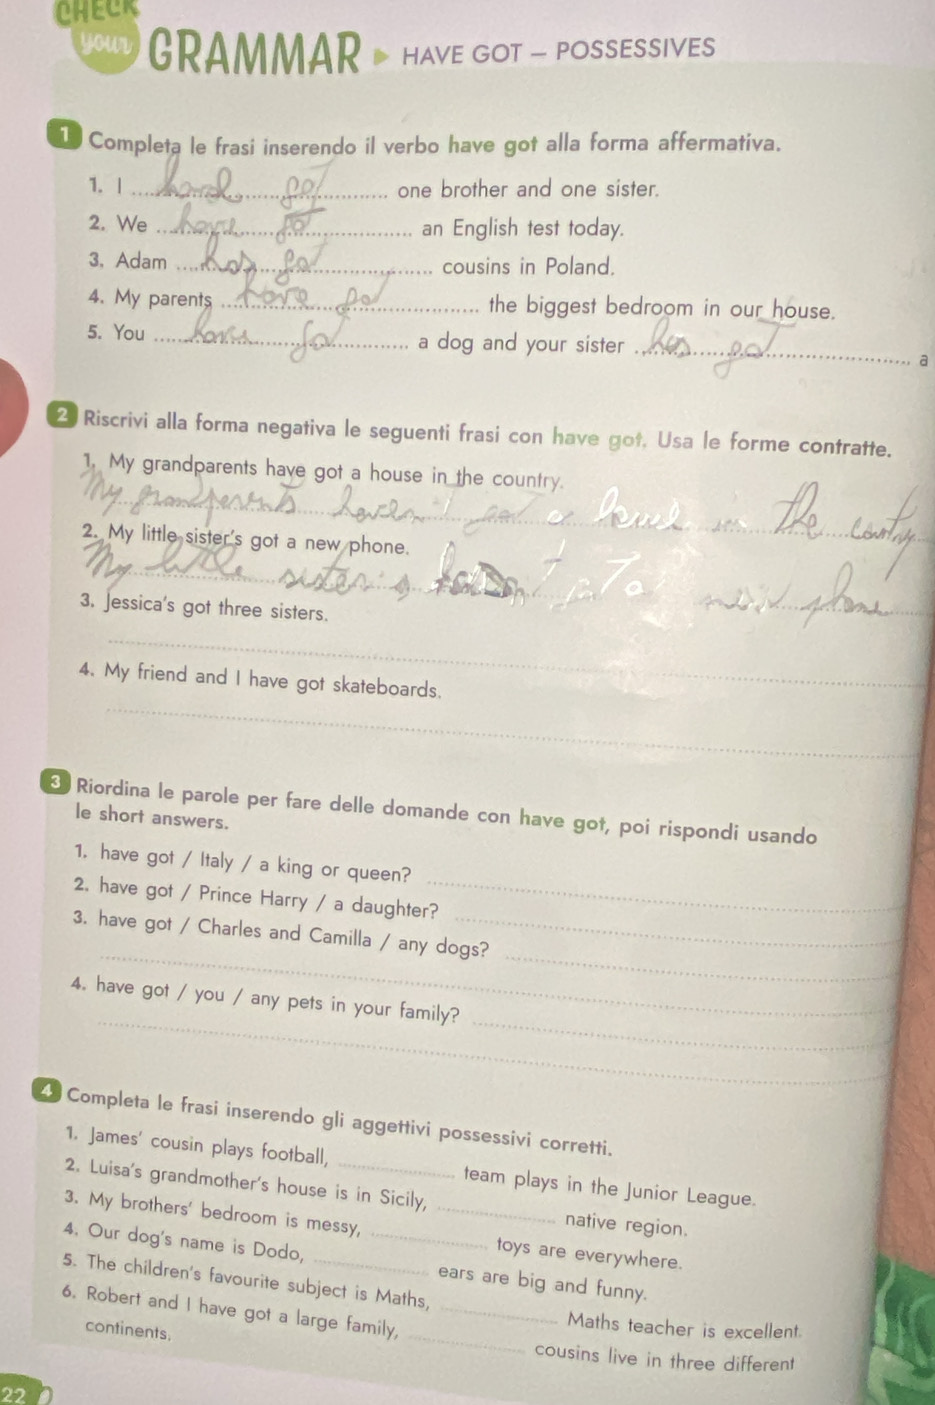 CHECK
your GRAMMAR HAVE GOT – POSSESSIVES
1 Completa le frasi inserendo il verbo have got alla forma affermativa.
1. I have got one brother and one sister.
2. We have got an English test today.
3. Adam has got cousins in Poland.
4. My parents have got the biggest bedroom in our house.
5. You have got a dog and your sister has got a
2 Riscrivi alla forma negativa le seguenti frasi con have got. Usa le forme contratte.
1. My grandparents have got a house in the country.
My grandparents haven't got a house in the country
2. My little sister's got a new phone.
My little sister's hasn't got a new phone
3. Jessica's got three sisters.
4. My friend and I have got skateboards.
3 Riordina le parole per fare delle domande con have got, poi rispondi usando
le short answers.
1. have got / Italy / a king or queen?
2. have got / Prince Harry / a daughter?
3. have got / Charles and Camilla / any dogs?
4. have got / you / any pets in your family?
4 Completa le frasi inserendo gli aggettivi possessivi corretti.
1. James' cousin plays football, team plays in the Junior League.
2. Luisa's grandmother's house is in Sicily, native region.
3. My brothers' bedroom is messy, toys are everywhere.
4. Our dog's name is Dodo, ears are big and funny.
5. The children's favourite subject is Maths, Maths teacher is excellent.
6. Robert and I have got a large family, cousins live in three different
continents.
22